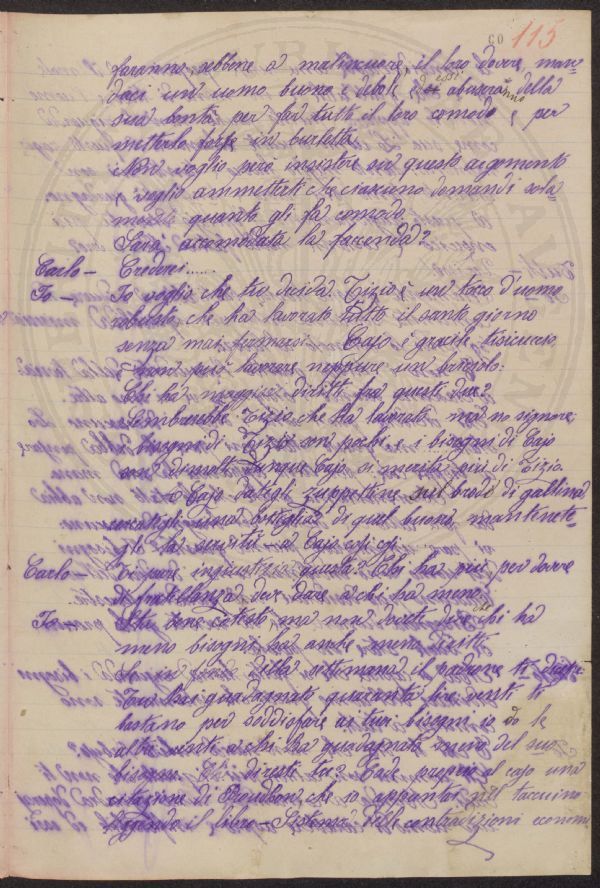 60 115
faranno, sebbene a malincuore, il loro dovere, man-
daci un uomo buono e debole ed essi abuseranno della
sua bontà per far tutti il loro comodo e per
metterlo forse in burletta.
Non voglio però insistere su questo argomento
e voglio ammetterti che ciascuno domandi sola-
mente quanto gli fa comodo.
Sarà accomodata la faccenda?
Carlo — Crederei......
Io — Io voglio che tu decida. Tizio è un tocco d'uomo
robusto, che ha lavorato tutto il santo giorno
senza mai fermarsi. Cajo è gracile, tisicuccio,
non può lavorare neppure un briciolo.
Chi ha maggiori diritti fra questi due?
Sembrerebbe Tizio che ha lavorato, ma no signore;
i bisogni di Tizio son pochi e i bisogni di Cajo
son dimolti dunque Cajo si merita più di Tizio.
A Cajo dategli zuppettine sul brodo di gallina
una bottiglia di quel buono, mantenete-
gli la servitù — a Cajo
Carlo — Ti pare ingiustizia questa? Chi ha più per dovere
di fratellanza deve dare a chi ha meno.
Io — Sta bene cotesto, ma non dovete dire che chi ha
meno bisogni ha anche meno diritti.
Se in fondo della settimana il padrone ti dicesse:
Tu hai guadagnato quaranta lire, venti ti
bastano per soddisfare ai tuoi bisogni, io do le
altre venti a chi ha guadagnato meno del suo
bisogno. Chi diresti tu? Cade proprio al caso una
citazione di Proudhon che io appuntai nel taccuino
leggendo il libro — Sistema delle contradizioni economi